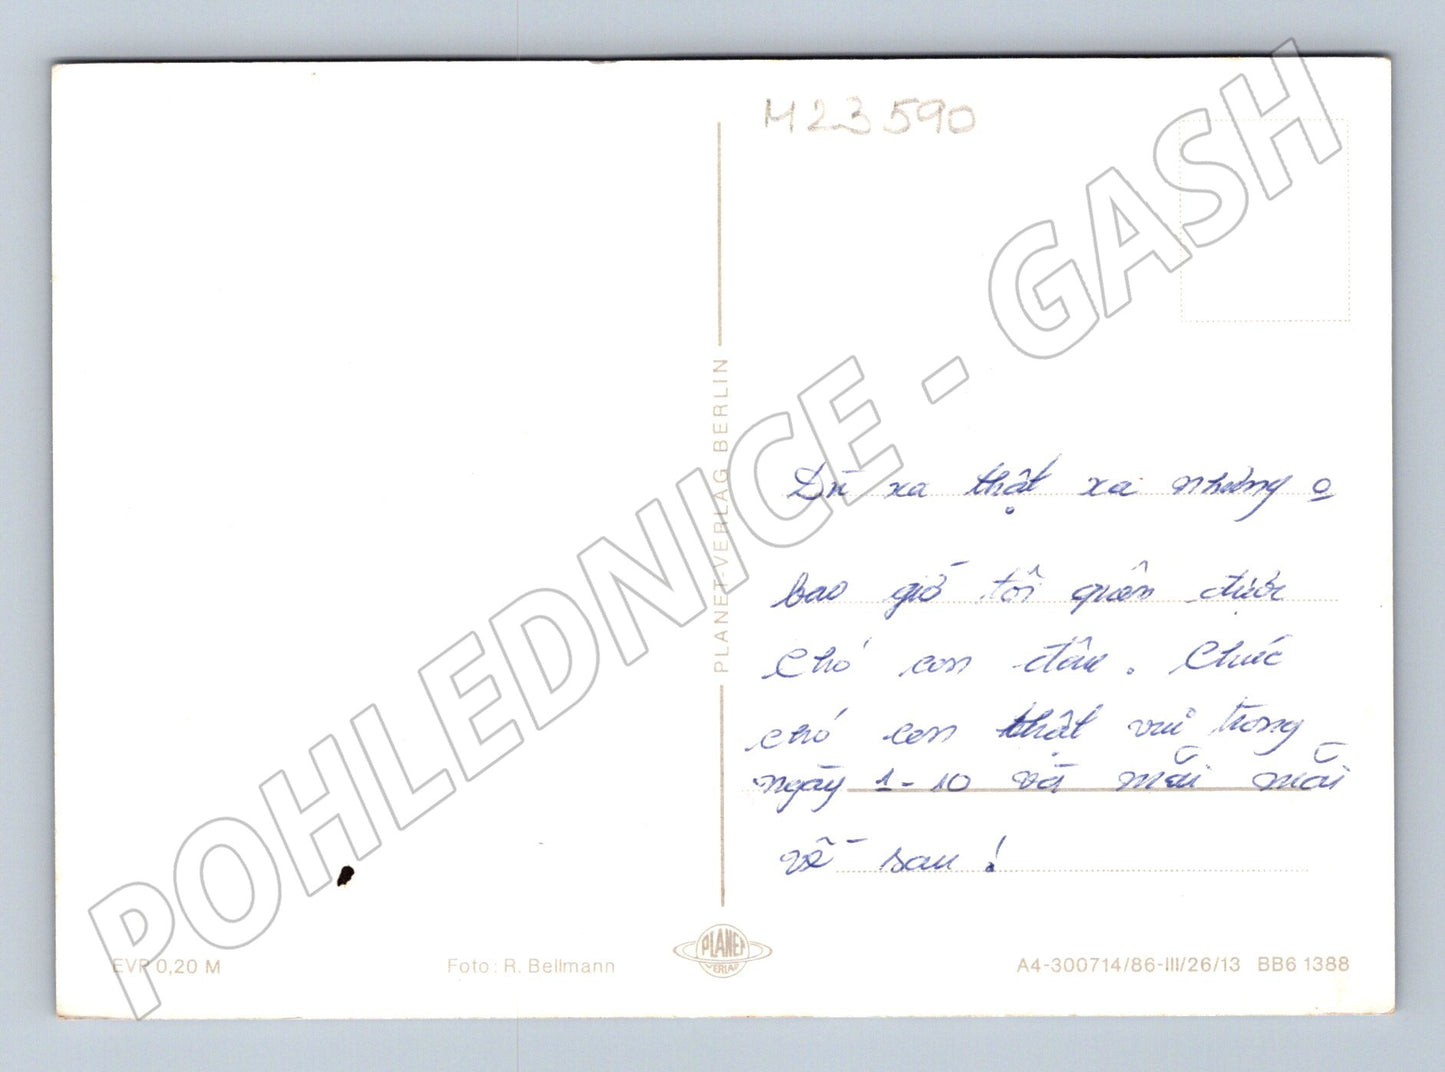 M23590
PLANET-VERLAG BERLIN
Dù xa thật xa nhưng
bao giờ tôi quên được
chó con đâu. Chúc
chó con thật vui trong
ngày 1-10 và mãi mãi
về sau!
EVP 0,20 M
Foto: R. Bellmann
PLANET
VERLAG
A4-300714/86-III/26/13 BB6 1388
POHLEDNICE - GASH